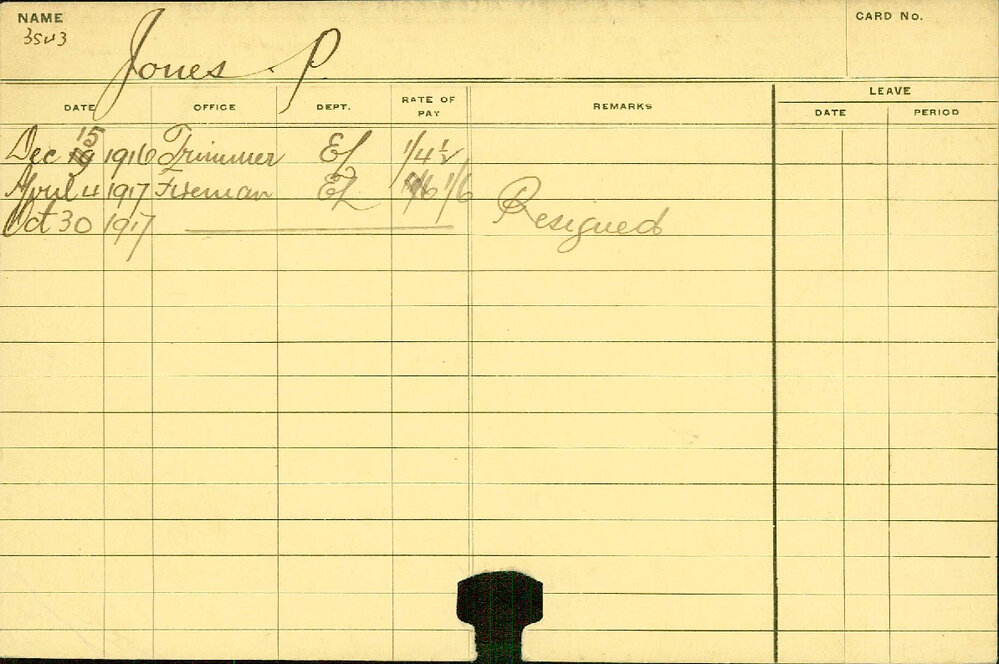 NAME CARD No.
3543
Jones. P
DATE OFFICE DEPT. RATE OF PAY REMARKS LEAVE
DATE PERIOD
Dec 15 1916 Trimmer EL 1/4½
April 4 1917 Fireman EL 1/6
Oct 30 1917 Resigned